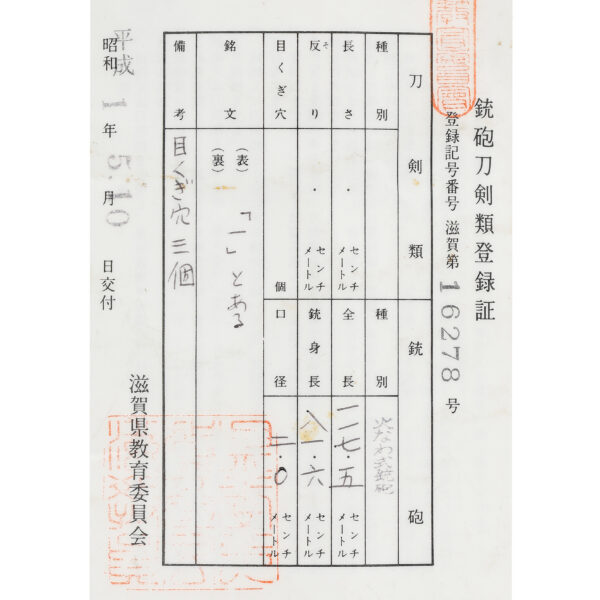 銃砲刀剣類登録証
登録記号番号 滋賀第 16278 号
刀剣類
銃砲
種別
種別 火なわ式銃砲
長さ ・ センチメートル
全長 一一七・五 センチメートル
反り そ ・ センチメートル
銃身長 八一・六 センチメートル
目くぎ穴 個
口径 二・〇 センチメートル
銘文 (表) 「一」とある
(裏)
備考 目くぎ穴三個
昭和 平成 1 年 5.10 月 日交付
滋賀県教育委員会